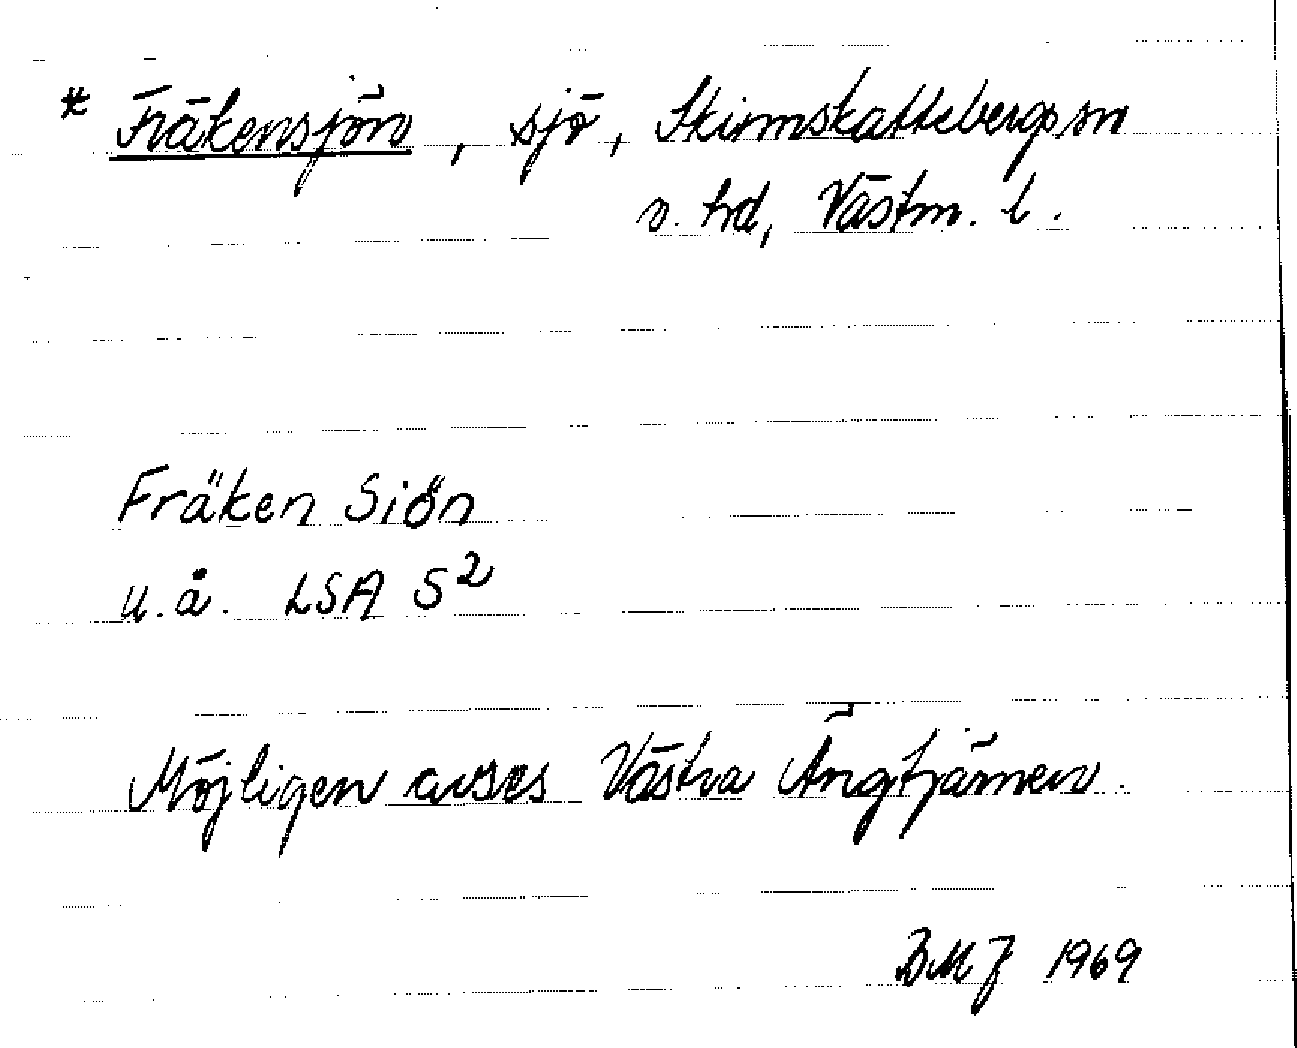 * Fräkensjön, sjö, Skinnskattebergs sn
o. hd, Västm. l.
Fräken Siön
u.å. LSA S²
Möjligen avses Västra Ängtjärnen.
BMJ 1969